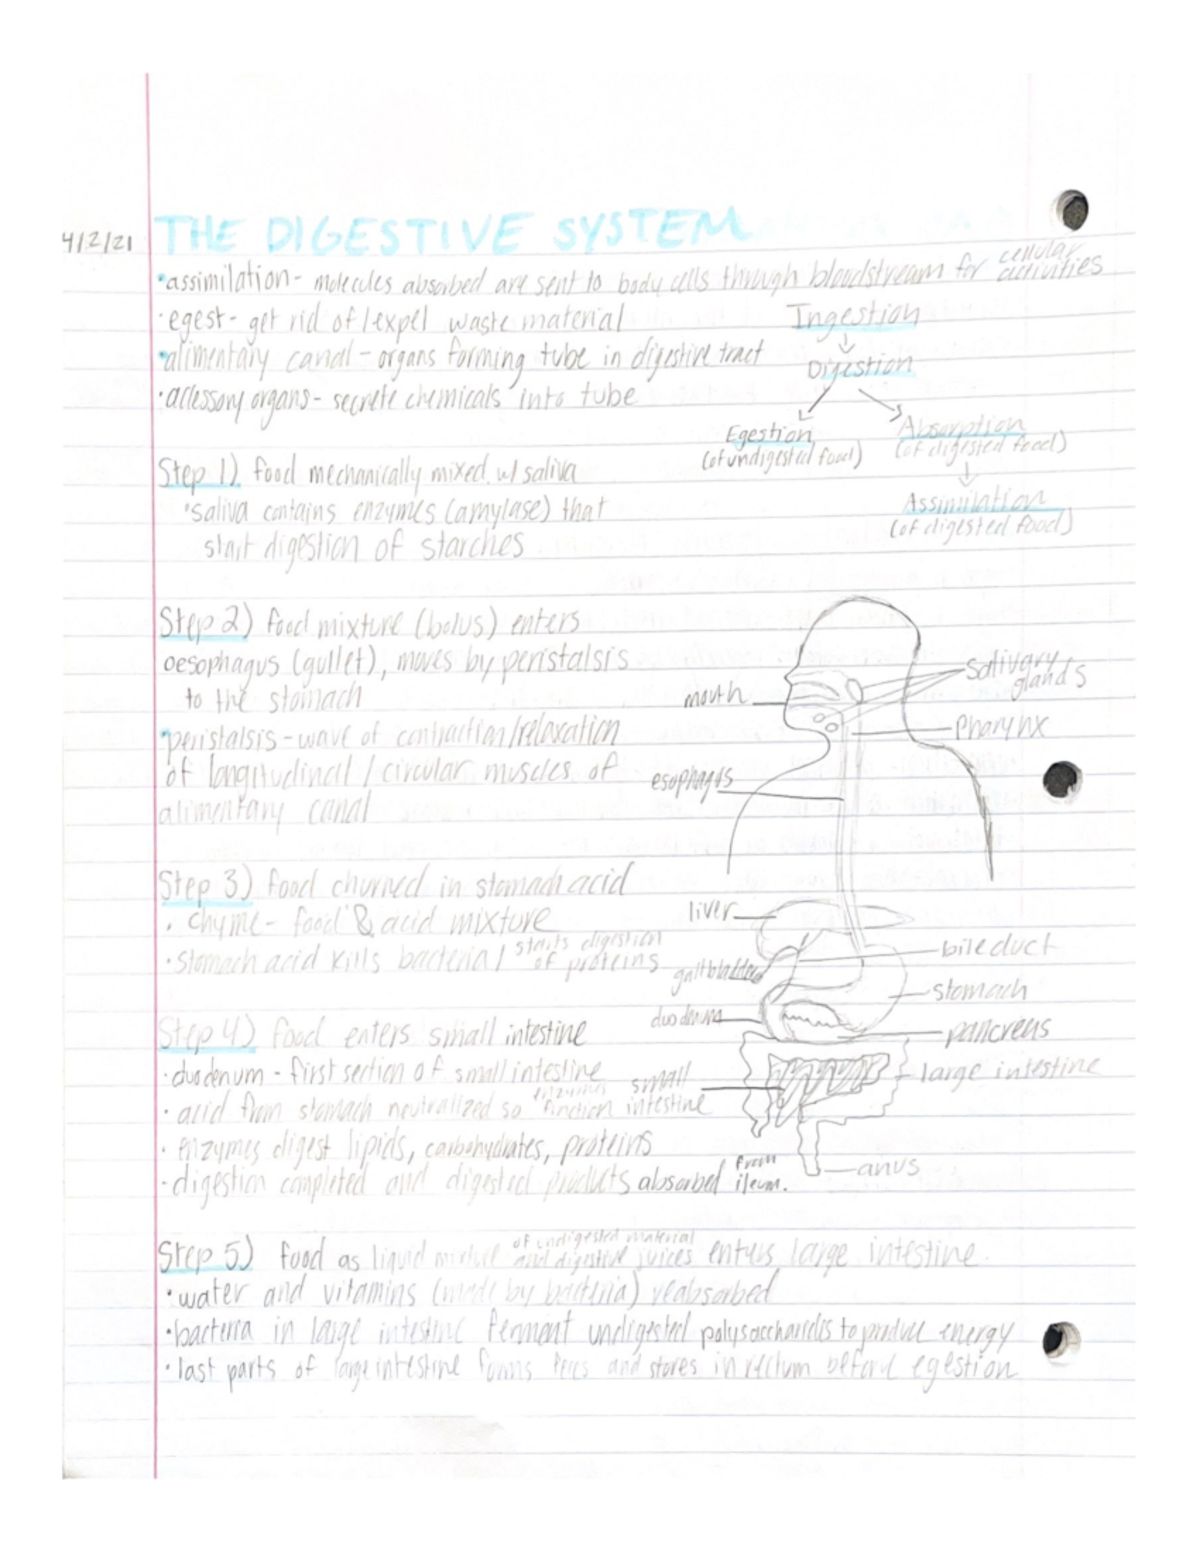 4/2/21 THE DIGESTIVE SYSTEM
•assimilation - molecules absorbed are sent to body cells through bloodstream for cellular activities
•egest - get rid of/expel waste material
•alimentary canal - organs forming tube in digestive tract
•accessory organs - secrete chemicals into tube
Ingestion
↓
Digestion
↙ ↘
Egestion
(of undigested food)
Absorption
(of digested food)
↓
Assimilation
(of digested food)
Step 1) food mechanically mixed w/ saliva
•saliva contains enzymes (amylase) that
start digestion of starches
Step 2) food mixture (bolus) enters
oesophagus (gullet), moves by peristalsis
to the stomach
•peristalsis - wave of contraction/relaxation
of longitudinal / circular muscles of
alimentary canal
mouth
salivary
glands
pharynx
esophagus
Step 3) food churned in stomach acid
• chyme - food & acid mixture
•stomach acid kills bacteria / starts digestion of proteins
liver
gallbladder
duodenum
bile duct
stomach
pancreas
large intestine
small
intestine
anus
Step 4) food enters small intestine
•duodenum - first section of small intestine
• acid from stomach neutralized so enzymes function
• enzymes digest lipids, carbohydrates, proteins
•digestion completed and digested products absorbed from ileum.
Step 5) food as liquid mixture of undigested material and digestive juices enters large intestine.
•water and vitamins (made by bacteria) reabsorbed
•bacteria in large intestine ferment undigested polysaccharides to produce energy
•last parts of large intestine forms feces and stores in rectum before egestion